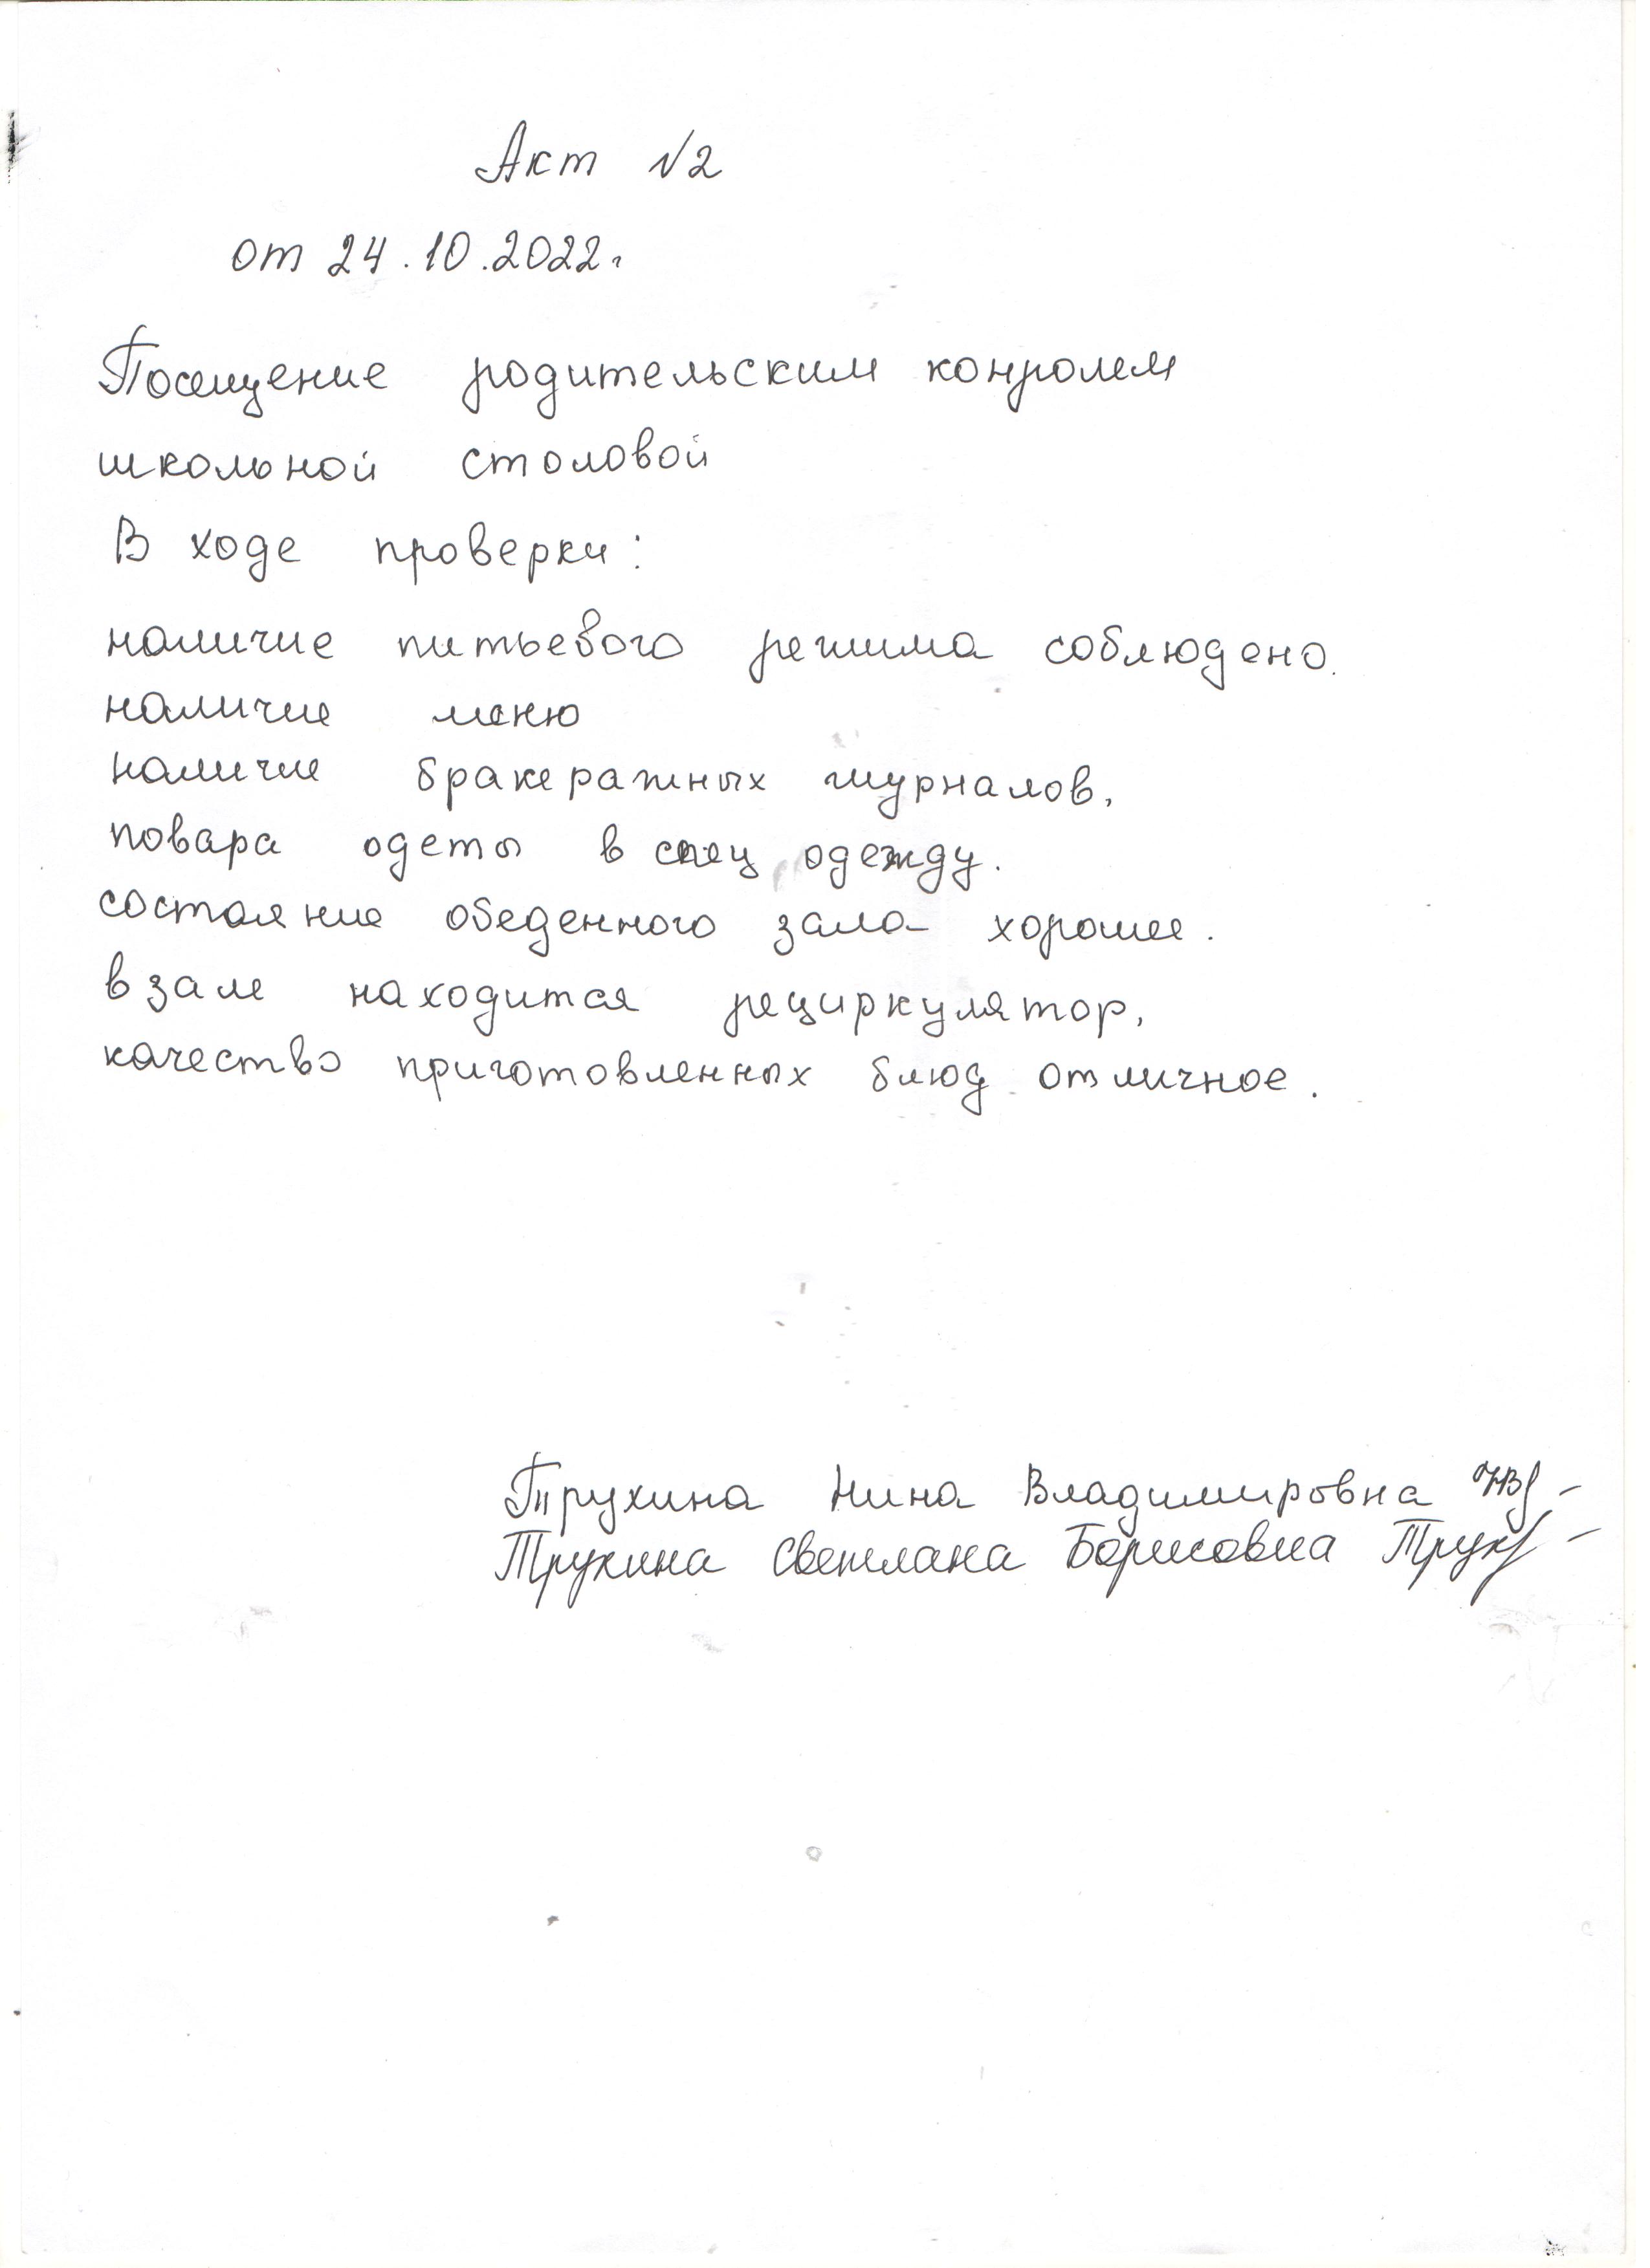 Акт №2
от 24.10.2022г
Посещение родительским конролем
школьной столовой
В ходе проверки:
наличие питьевого режима соблюдено.
наличие меню
наличие бракеражных журналов,
повара одеты в спец одежду.
состояние обеденного зала хорошее.
в зале находится рециркулятор,
качество приготовленных блюд отличное.
Трухина Нина Владимировна
Трухина Светлана Борисовна